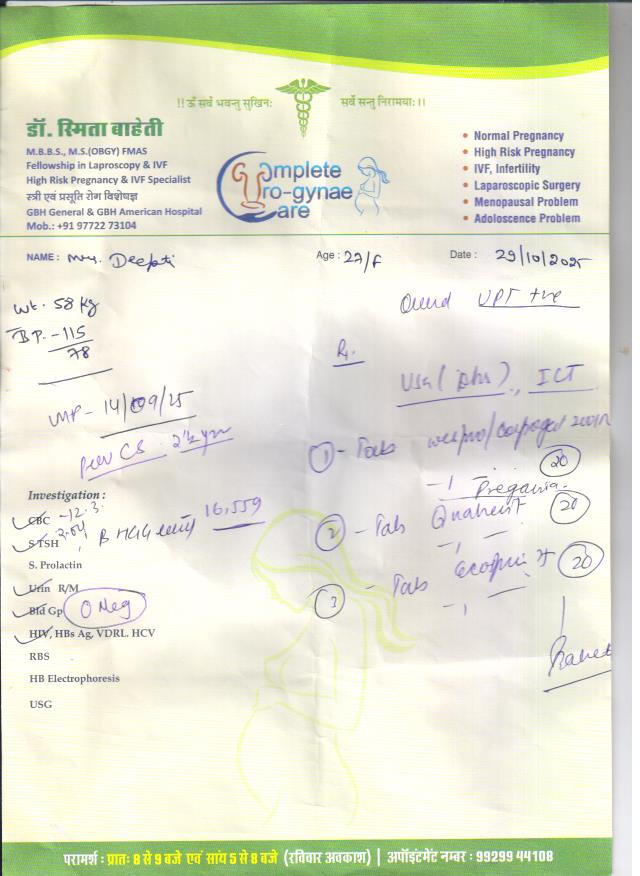 !! ॐ सर्वे भवन्तु सुखिनः सर्वे सन्तु निरामयाः ।।
डॉ. स्मिता बाहेती
M.B.B.S., M.S.(OBGY) FMAS
Fellowship in Laproscopy & IVF
High Risk Pregnancy & IVF Specialist
स्त्री एवं प्रसूति रोग विशेषज्ञ
GBH General & GBH American Hospital
Mob.: +91 97722 73104
Complete
Uro-gynae
Care
• Normal Pregnancy
• High Risk Pregnancy
• IVF, Infertility
• Laparoscopic Surgery
• Menopausal Problem
• Adoloscence Problem
NAME : Mrs. Deepti Age : 27/F Date : 29/10/2025
Wt. 58 kg
BP. - 115
78
LMP - 14/09/25
Prev CS. 2½ yr
UPT +ve
Rx.
USG ( ), ICT
① - Tab 200
- 1 (20)
② - Tab (20)
- 1 -
③ - Tab Ecosprin (20)
- 1 -
Investigation :
CBC - 12.3
S TSH 3.04, B HCG 16,559
S. Prolactin
Urin R/M
Bld Gp O Neg
HIV, HBs Ag, VDRL. HCV
RBS
HB Electrophoresis
USG
परामर्श : प्रातः 8 से 9 बजे एवं सांय 5 से 8 बजे (रविवार अवकाश) | अपॉइंटमेंट नम्बर : 99299 44108